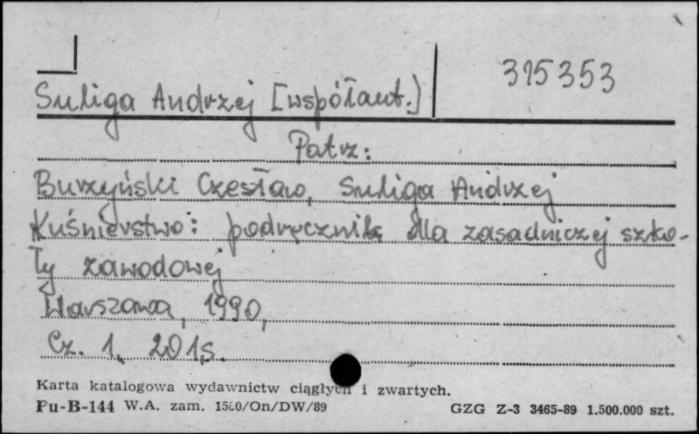 315353
Suliga Andrzej [współaut.]
Patrz:
Burzyński Czesław, Suliga Andrzej
Kuśnierstwo: podręcznik dla zasadniczej szko-
ły zawodowej
Warszawa, 1990,
Cz. 1, 201s.
Karta katalogowa wydawnictw ciągłych i zwartych.
Pu-B-144 W.A. zam. 1560/On/DW/89 GZG Z-3 3465-89 1.500.000 szt.